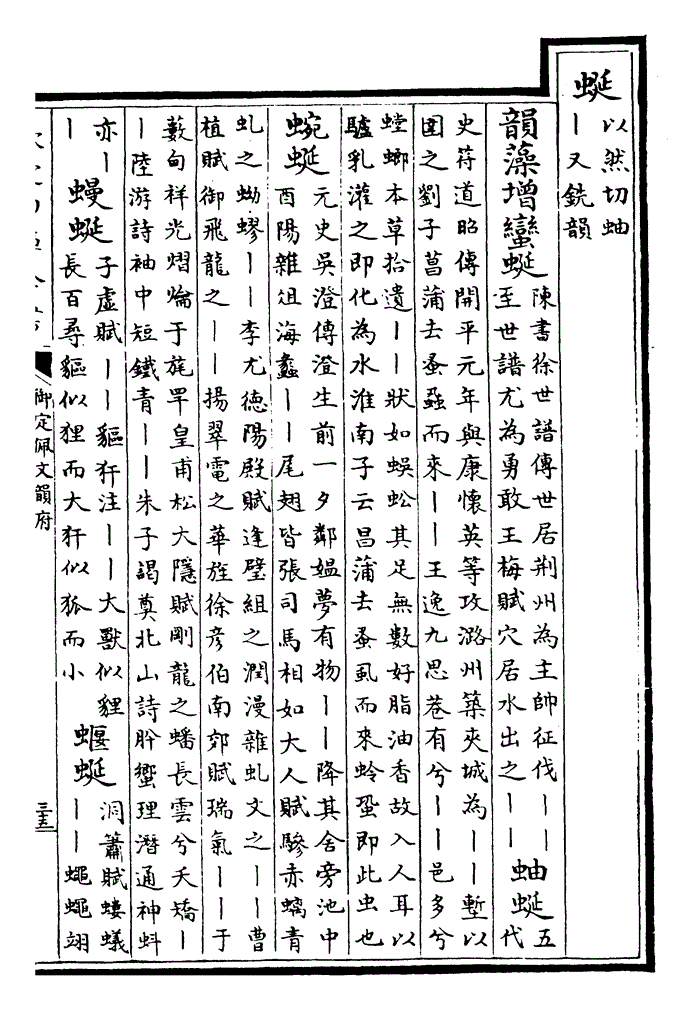 蜒以然切蚰
―又銑韻
韻藻增蠻蜒陳書徐世譜傳世居荆州為主帥征伐――
至世譜尤為勇敢王梅賦穴居水出之――
蚰蜒五
代
史苻道昭傳開平元年與康懷英等攻潞州築夾城為――塹以
圍之劉子菖蒲去蚤蝨而來――王逸九思巷有兮――邑多兮
螳螂本草拾遺――狀如蜈蚣其足無數好脂油香故入人耳以
驢乳灌之即化為水淮南子云昌蒲去蚤虱而來蛉蛩即此虫也
蜿蜒元史吳澄傳澄生前一夕鄰媪夢有物――降其舍旁池中
酉陽雜俎海蠡――尾翅皆張司馬相如大人賦驂赤螭青
虬之蚴蟉――李尤德陽殿賦逢璧組之潤漫雜虬文之――曹
植賦御飛龍之――揚翠電之華旌徐彦伯南郊賦瑞氣――于
藪甸祥光熠爚于旄罕皇甫松大隱賦剛龍之蟠長雲兮夭矯―
―陸游詩袖中短鐵青――朱子謁奠北山詩肸蠁理潛通神蚪
亦―
―
蟃蜒子虛賦――貙犴注――大獸似貍
長百尋貙似狸而大犴似狐而小
蝘蜒洞簫賦螻蟻
――蠅蠅翊
御定佩文韻府
三五